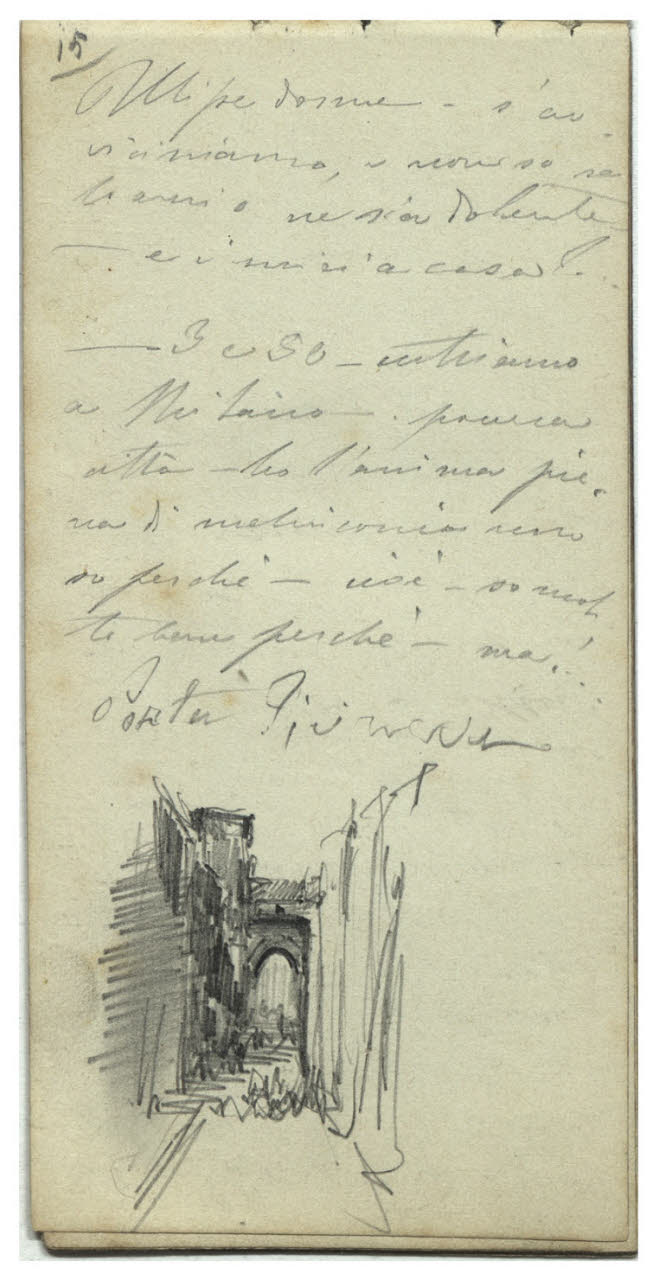 15
Ulisse dorme – s'av
viciniamo, e non so se
ne sia dolente
– e i miei a casa?..
— 3 e 50 – entriamo
a Milano – povera
città – ho l'anima pie-
na di melinconia non
so perchè – cioè – so mol
te bene perchè – ma!...
Porta